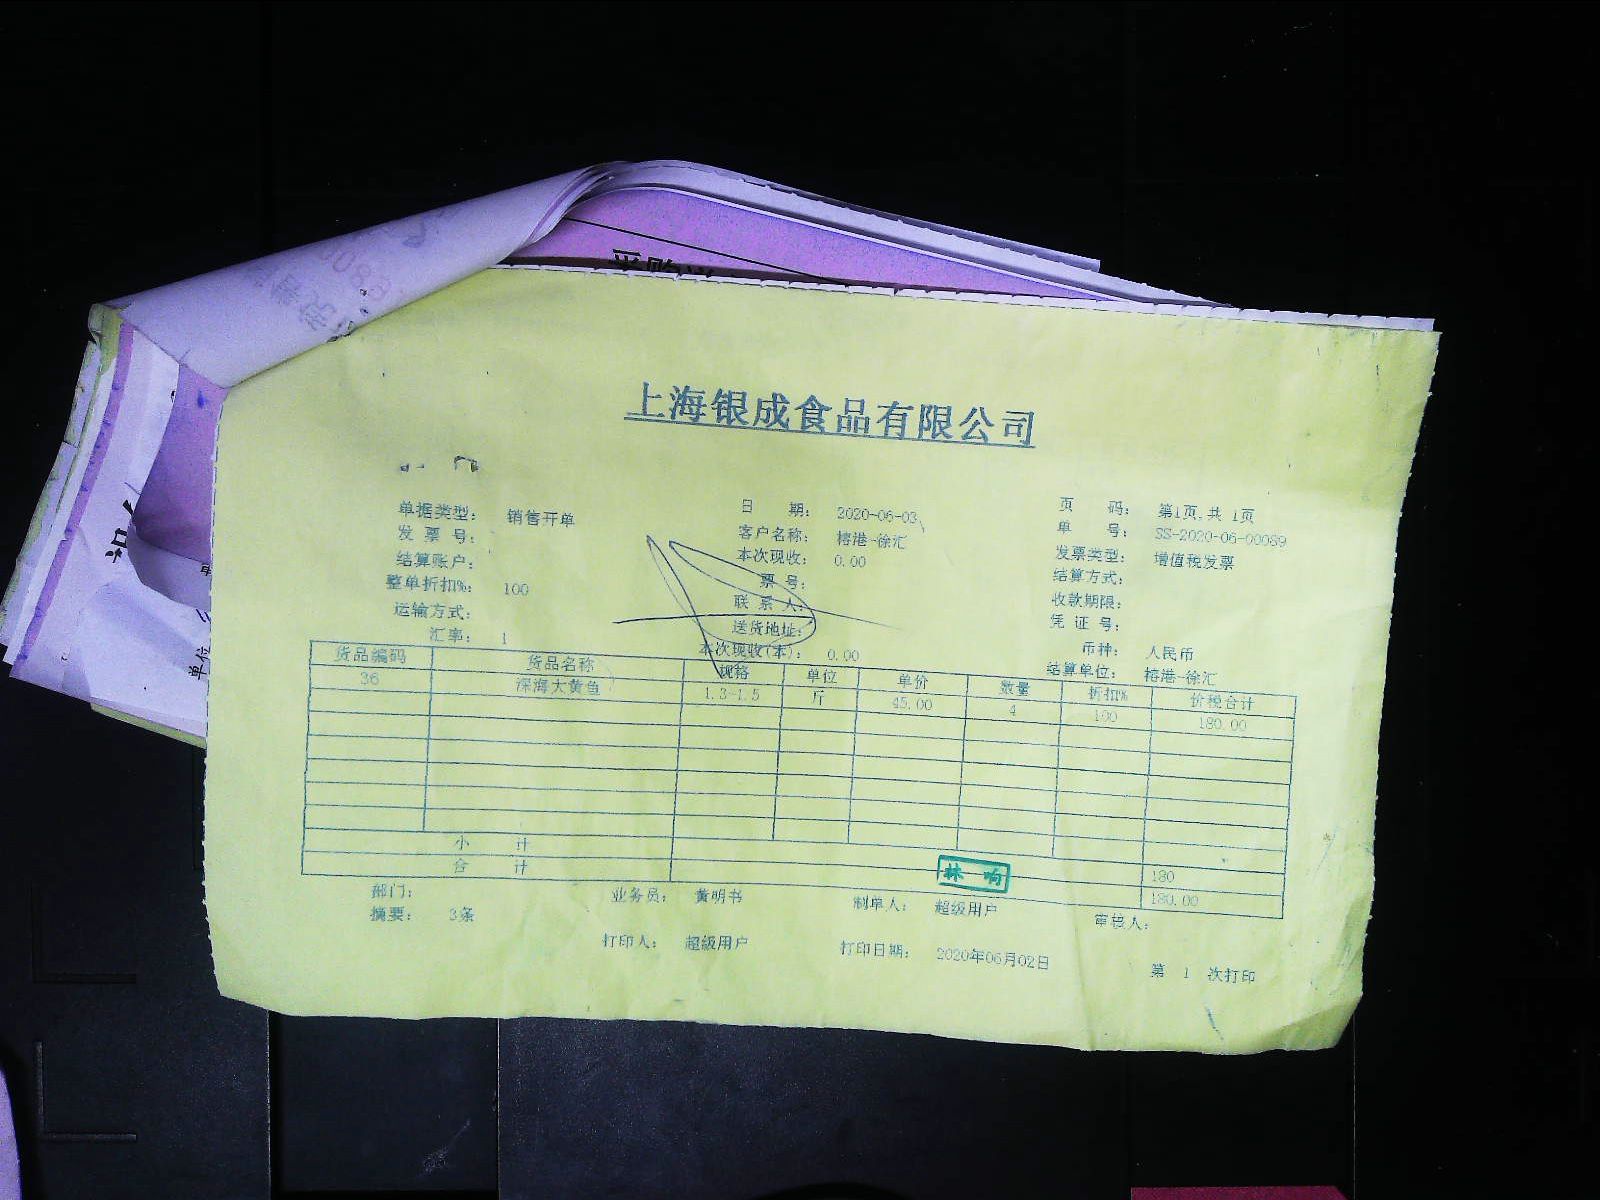 采购
上海银成食品有限公司
单据类型： 销售开单 日 期： 2020-06-03 页 码： 第1页,共 1页
发 票 号： 客户名称： 榕港-徐汇 单 号： SS-2020-06-00089
结算账户： 本次现收： 0.00 发票类型： 增值税发票
整单折扣%： 100 票 号： 结算方式：
运输方式： 联 系 人： 收款期限：
汇率： 1 送货地址： 凭 证 号：
本次现收(本)： 0.00 币种： 人民币
结算单位： 榕港-徐汇
货品编码 货品名称 规格 单位 单价 数量 折扣% 价税合计
36 深海大黄鱼 1.3-1.5 斤 45.00 4 100 180.00
小 计 180
合 计 180.00
林 响
部门： 业务员： 黄明书 制单人： 超级用户 审核人：
摘要： 3条
打印人： 超级用户 打印日期： 2020年06月02日 第 1 次打印
单位